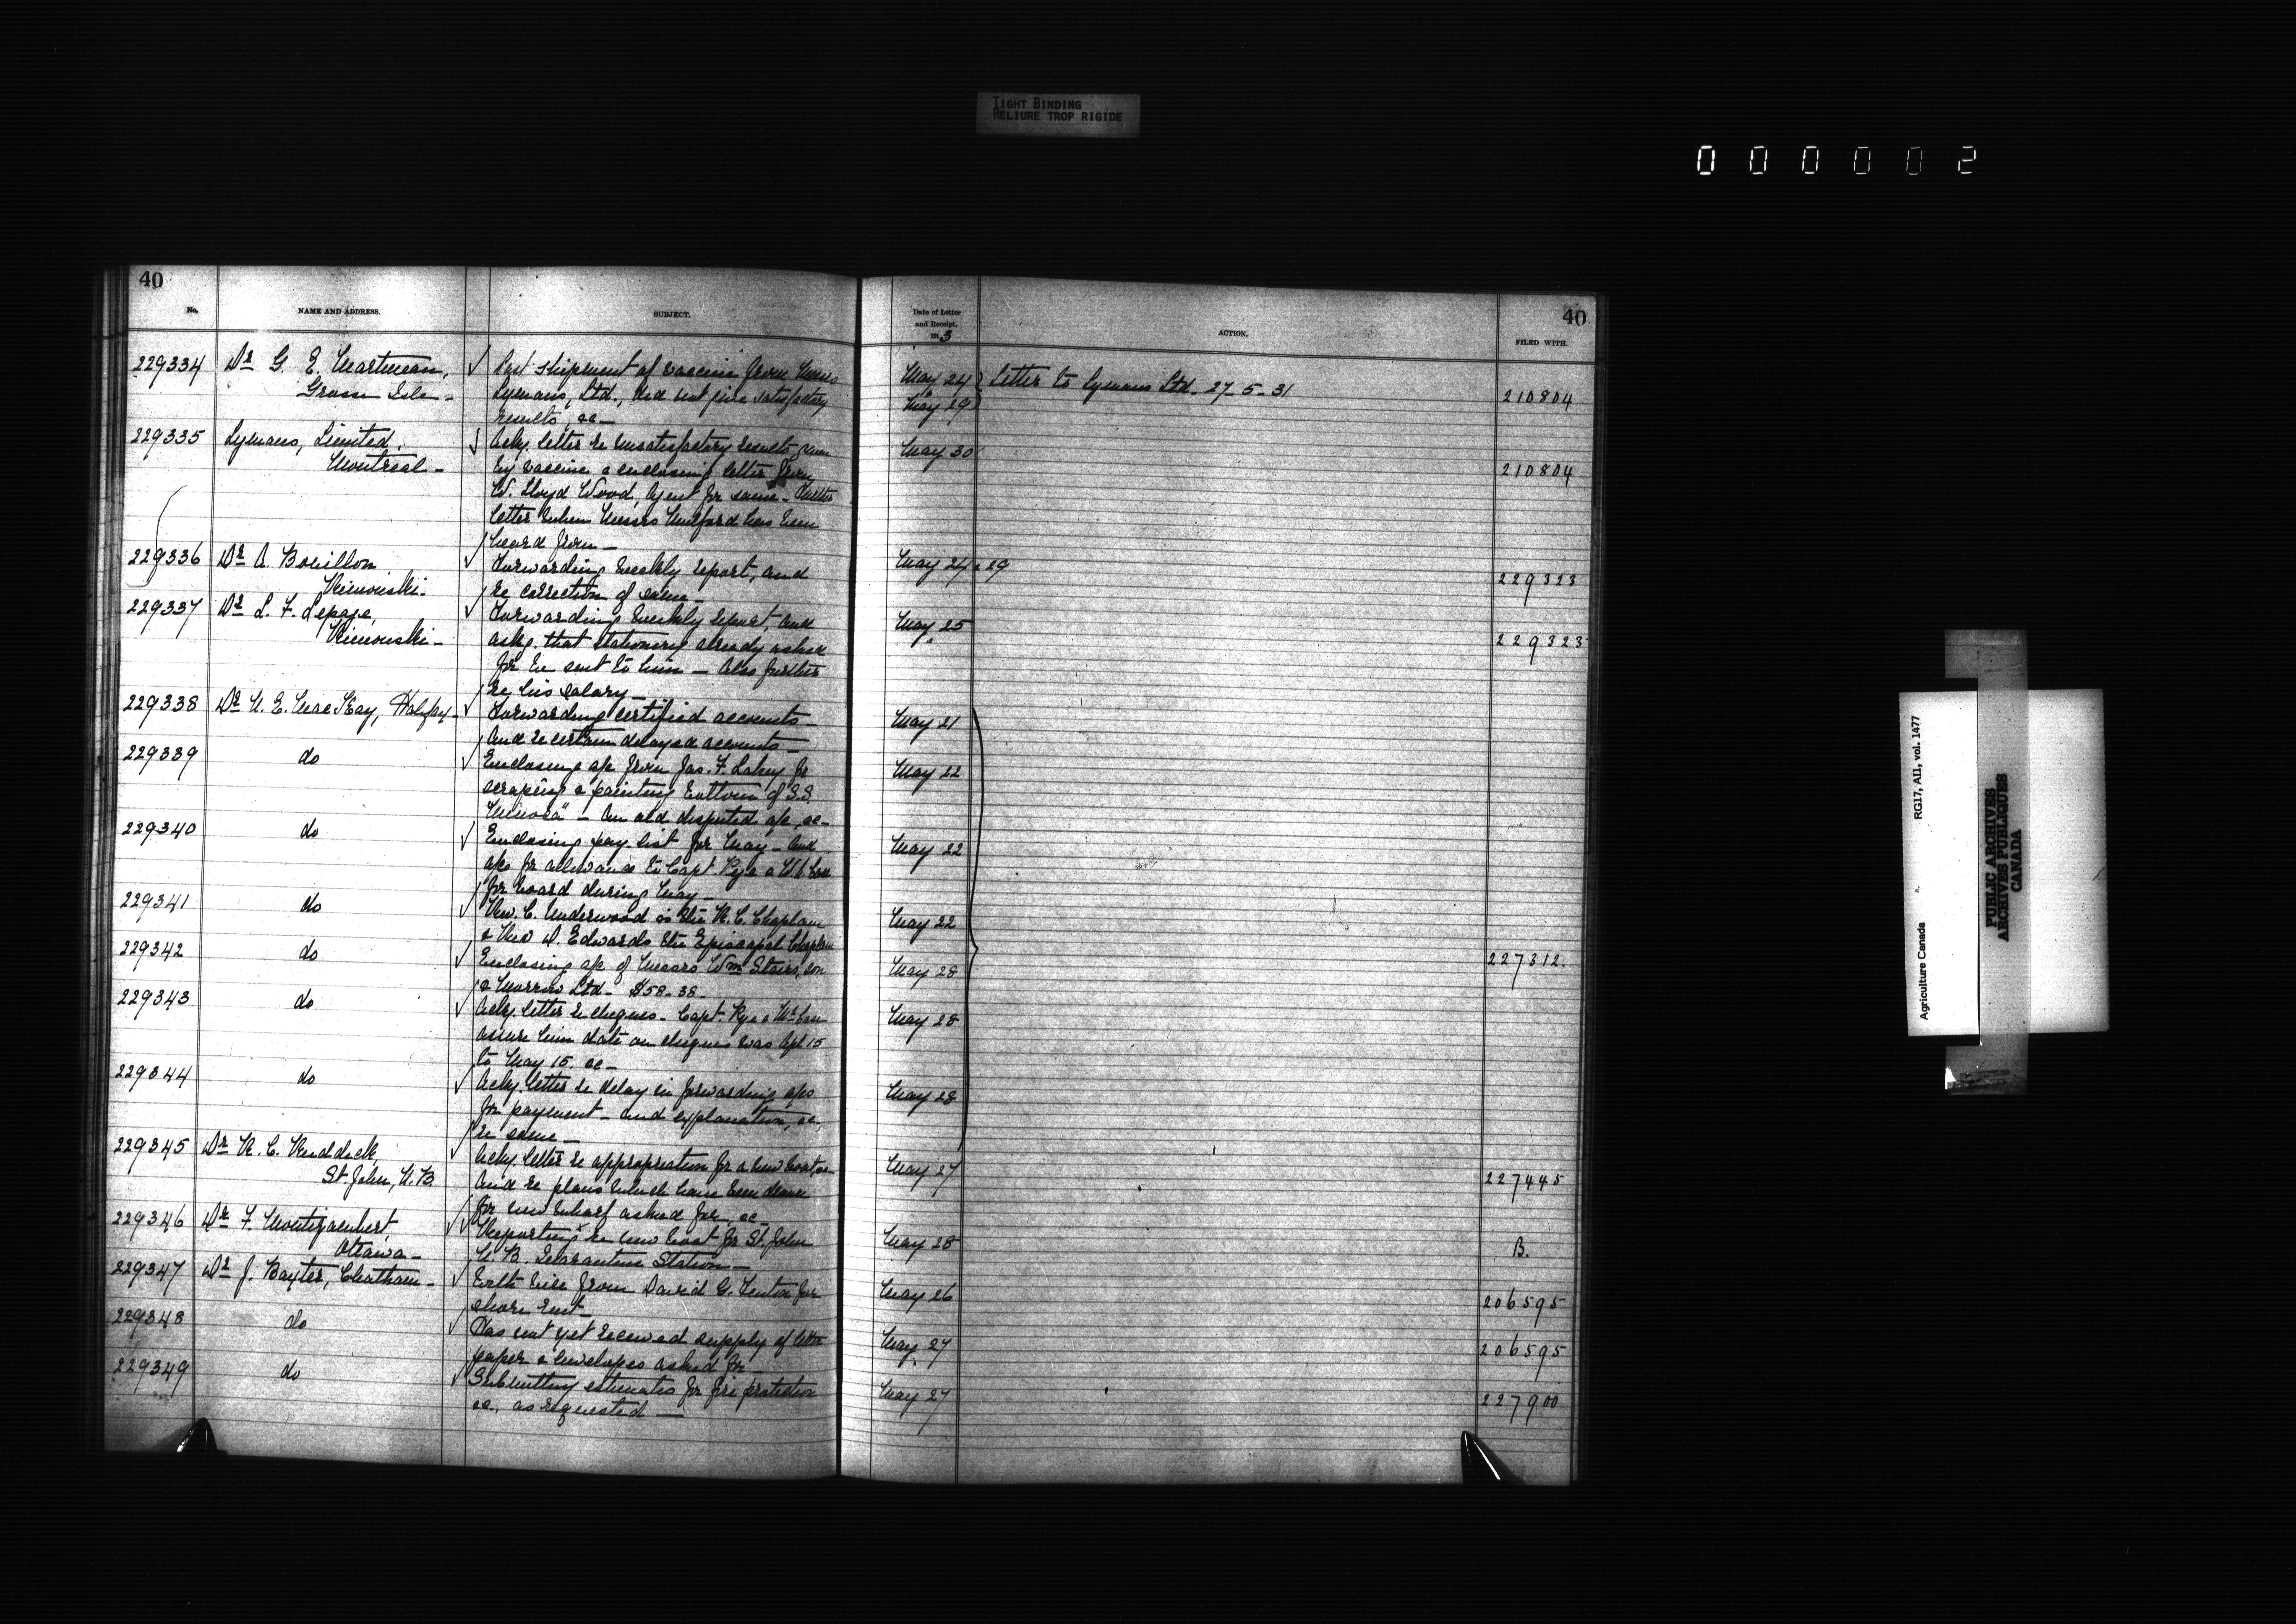 TIGHT BINDING
RELIURE TROP RIGIDE
0 0 0 0 0 2
40
No. NAME AND ADDRESS. SUBJECT.
229334 Dr G. E. Martineau, Last shipment of vaccine from Messrs
Grosse Isle - Lymans, Ltd., did not give satisfactory
results, &c -
229335 Lymans, Limited. Ackg letter re unsatisfactory results given
Montreal - by vaccine & enclosing letter from
W. Lloyd Wood, Agent for same - Further
letter when Messrs Mulford has been
heard from -
229336 Dr A. Bouillon Forwarding weekly report, and
Rimouski - re correction of same -
229337 Dr L. F. Lepage, Forwarding weekly report, and
Rimouski - asks that stationery already asked
for be sent to him - Also further
re his salary -
229338 Dr N. E. MacKay, Halifax - Forwarding certified accounts -
And re certain delayed accounts -
229339 do Enclosing a/c from Jas. F. Lahey for
scraping & painting bottom of S.S.
"Mimosa" - An old disputed a/c, &c -
229340 do Enclosing pay list for May - And
a/cs for allowance to Capt. Rye &
for board during May -
229341 do Rev. C. Underwood is the R. C. Chaplain
& Rev. D. Edwards the Episcopal Chaplain
229342 do Enclosing a/c of Messrs Wm Stairs, Son
& Morrow Ltd - $58.38 -
229343 do Ackg letter re cheques - Capt. Rye &
assure him date on cheques was Apl 15
to May 15, &c -
229344 do Ackg letter re delay in forwarding a/cs
for payment - and explanation, &c,
re same -
229345 Dr R. C. Ruddick, Ackg letter re appropriation for a new boat &c
St. John, N.B. And re plans which have been drawn
for new wharf asked for, &c -
229346 Dr F. Montizambert, Reporting re new boat for St. John
Ottawa - N. B. Quarantine Station -
229347 Dr J. Baxter, Chatham - With bill from David G. for
shore rent -
229348 do Has not yet received supply of letter
paper & envelopes asked for -
229349 do Submitting estimates for fire protection
&c, as requested -
40
Date of Letter and Receipt. 1913 ACTION. FILED WITH.
May 24 Letter to Lymans Ltd - 27-5-31 210804
May 29
May 30 210804
May 24 & 29 229323
May 25 229323
May 21
May 22
May 22
May 22
227312.
May 28
May 28
May 28
May 27 227445
May 28 B.
May 26 206595
May 27 206595
May 27 227900
RG17, AI1, vol. 1477
Agriculture Canada
PUBLIC ARCHIVES
ARCHIVES PUBLIQUES
CANADA